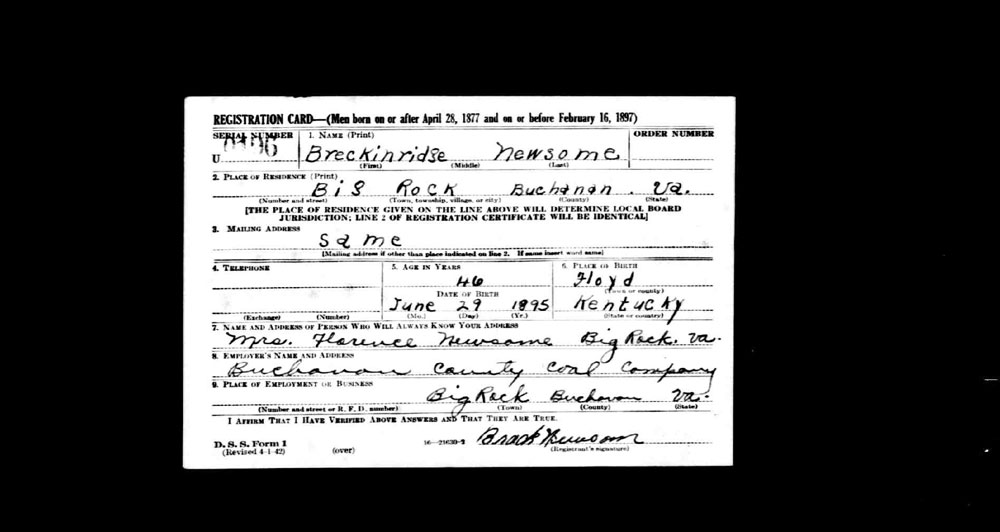 REGISTRATION CARD—(Men born on or after April 28, 1877 and on or before February 16, 1897)
SERIAL NUMBER 1. NAME (Print) ORDER NUMBER
U
Breckinridge Newsome
(First) (Middle) (Last)
2. PLACE OF RESIDENCE (Print)
Big Rock Buchanan Va.
(Number and street) (Town, township, village, or city) (County) (State)
[THE PLACE OF RESIDENCE GIVEN ON THE LINE ABOVE WILL DETERMINE LOCAL BOARD
JURISDICTION; LINE 2 OF REGISTRATION CERTIFICATE WILL BE IDENTICAL]
3. MAILING ADDRESS
Same
[Mailing address if other than place indicated on line 2. If same insert word same]
4. TELEPHONE 5. AGE IN YEARS 6. PLACE OF BIRTH
46 Floyd
DATE OF BIRTH (Town or county)
June 29 1895 Kentucky
(Exchange) (Number) (Mo.) (Day) (Yr.) (State or country)
7. NAME AND ADDRESS OF PERSON WHO WILL ALWAYS KNOW YOUR ADDRESS
Mrs. Florence Newsome Big Rock. Va.
8. EMPLOYER'S NAME AND ADDRESS
Buchanan County Coal Company
9. PLACE OF EMPLOYMENT OR BUSINESS
Big Rock Buchanan Va.
(Number and street or R. F. D. number) (Town) (County) (State)
I AFFIRM THAT I HAVE VERIFIED ABOVE ANSWERS AND THAT THEY ARE TRUE.
D. S. S. Form 1 16—21630-2 Newsom
(Revised 4-1-42) (over) (Registrant's signature)